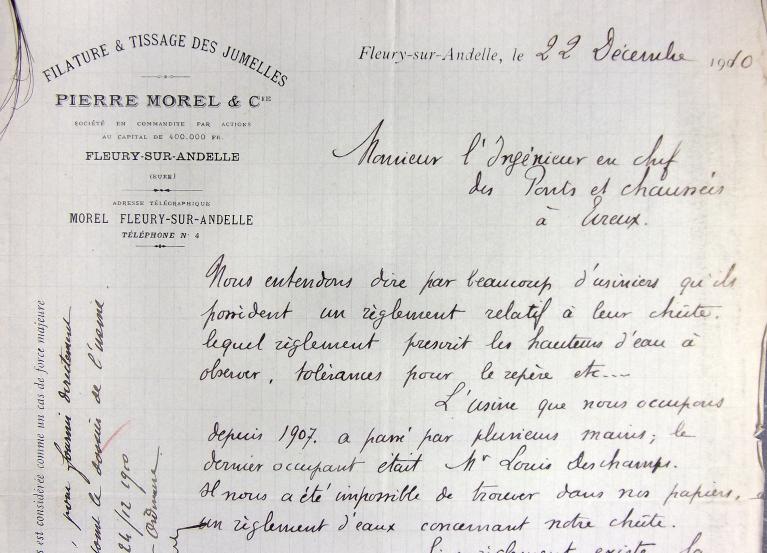 FILATURE & TISSAGE DES JUMELLES
PIERRE MOREL & CIE
SOCIÉTÉ EN COMMANDITE PAR ACTIONS
AU CAPITAL DE 400.000 FR.
FLEURY-SUR-ANDELLE
(EURE)
ADRESSE TÉLÉGRAPHIQUE
MOREL FLEURY-SUR-ANDELLE
TÉLÉPHONE N° 4
Fleury-sur-Andelle, le 22 Décembre 1910
Monsieur l'Ingénieur en chef
des Ponts et chaussées
à Evreux.
Nous entendons dire par beaucoup d'usiniers qu'ils
possèdent un règlement relatif à leur chûte.
lequel règlement prescrit les hauteurs d'eau à
observer, tolérances pour le repère etc...
L'usine que nous occupons
depuis 1907. a passé par plusieurs mains; le
dernier occupant était Mr Louis Deschamps.
Il nous a été impossible de trouver dans nos papiers,
un règlement d'eaux concernant notre chûte.
est considérée comme un cas de force majeure
pour fournir directement
le dossier de l'usine.
24/12 1910